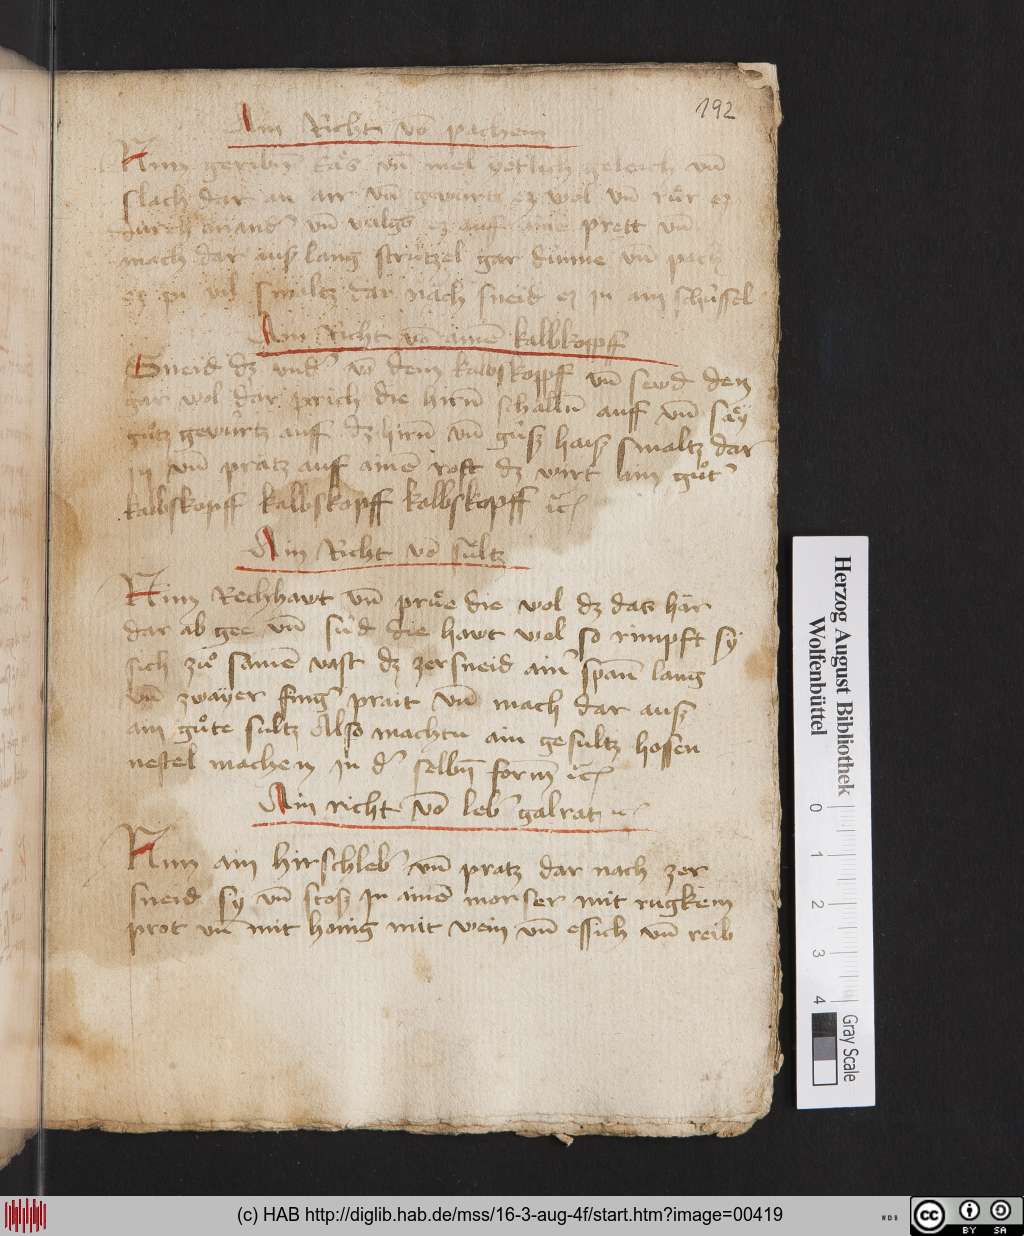 192
Ain Richt võ pachem
Nim geriben Käs vñ mel yetlich geleich vñ
slach dar an air vñ gewurtz ez wol vñ rür ez
durch ainand' vñ valgs ez auff aine prett vñ
mach dar aus lang strützel gar dünne vñ pach
ez in vil smaltz dar nach sneid ez in ain schüssel
Ain Richt võ ainẽ kalbkopff
Sneid dz võ dem kalbskopff vñ sewd den
gar wol dar prich die hirn schalln auff vñ säy
gutz gewürtz auff dz hirn vñ gus hais smaltz dar
in vñ pratz auf ainẽ rost dz wirt ain gut'
kalbskopff kalbskopff kalbskopff ꝛc
Ain Richt võ sultz
Nim Rechhawt vñ prüe die wol dz datz här
dar ab gee vñ süd die hawt wol so rimpft sy
sich zů samẽ vast dz zersneid ain' span lang
vñ zwayer fing' prait vñ mach dar aus
ain gůte sultz Also machtu ain gesultz hosen
nestel machen in d' selbñ form ꝛc
Ain richt võ leb' galrat ꝛc
Nim ain hirschleb' vñ pratz dar nach zer
sneid sy vñ stosz in ainẽ morser mit rugkeim
prot vñ mit honig mit wein vñ essich vñ reib
Herzog August Bibliothek
Wolfenbüttel
0 1 2 3 4
Gray Scale
(c) HAB http://diglib.hab.de/mss/16-3-aug-4f/start.htm?image=00419
WDB
cc BY SA